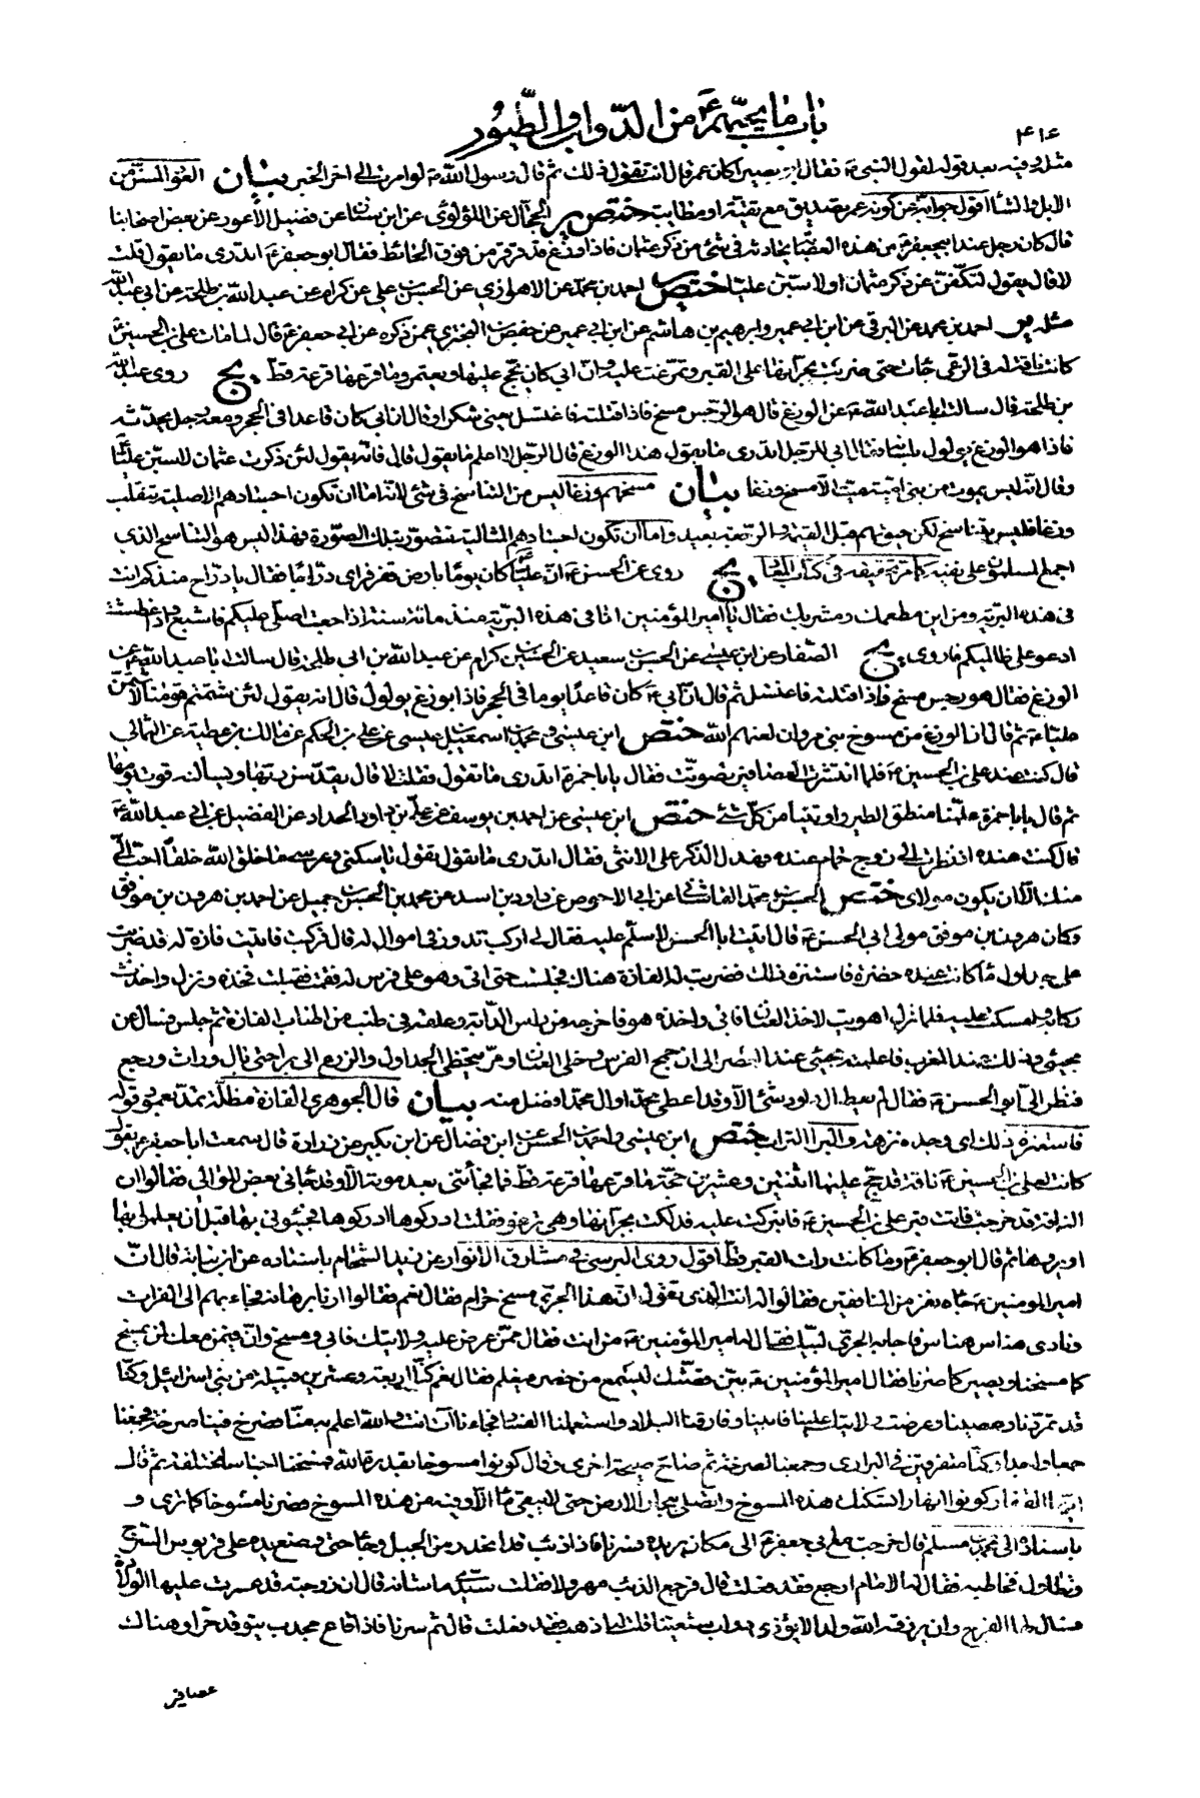 باب ما يحبّهم ع من الدّواب والطّيور
٤١٦
مثله وفيه بعد قوله لقول النبي ص فقال ابو بصير اكان عمر قال انت تقول ذلك ثم قال رسول الله ص لو امرت الى اخر الخبر بيان القو المسنّ من
الابل والشا اقول جوابه عن كونه عمر بصديق مع تقيّة او مطايبة ختص ير الجمّال عن اللؤلؤى عن ابن سنان عن فضيل الأعور عن بعض اصحابنا
قال كان رجل عند ابى جعفر ع من هذه العصابة يحادثه فى شئ من ذكر عثمان فاذا وزغ قد قرقر من فوق الحائط فقال ابو جعفر ع اتدرى ما يقول قلت
لا قال يقول لتكفّن عن ذكر عثمان او لاسبّن عليّا ختص احمد بن محمد عن الاهوازي عن الحسن بن علي عن كرام عن عبد الله بن طلحة عن ابى عبد الله
مثله ير احمد بن محمد عن البرقى عن ابن ابى عمير وابرهيم بن هاشم عن ابن ابى عمير عن حفص البخترى عمن ذكره عن ابى جعفر ع قال لما مات على بن الحسين ع
كانت ناقة له فى الرعى جاءت حتى ضربت بجرانها على القبر وتمرّغت عليه وان ابى كان يحج عليها ويعتمر وما قرعها قرعة قط يج روى عبد الله
بن طلحة قال سالت ابا عبد الله ع عن الوزغ قال هو الرجس مسخ فاذا قتلته فاغتسل يعنى شكرا وقال ان ابى كان قاعدا فى الحجر ومعه رجل يحدّثه
فاذا هو الوزغ يولول بلسانه فقال ابى للرجل اتدرى ما يقول هذا الوزغ قال الرجل لا اعلم ما يقول قال فانه يقول لئن ذكرت عثمان لاسبّن عليّا
وقال انه ليس يموت من بنى اميّة ميت الّا مسخ وزغا بيان مسخهم وزغا ليس من التناسخ فى شئ لانّه اما ان تكون اجسادهم الاصلية تتقلب
وزغا فليس بتناسخ لكن حيوتهم قبل القيمة والرجعة بعيد واما ان تكون اجسادهم المثالية تتصوّر بتلك الصّورة فهذا ليس هو التناسخ الذى
اجمع المسلمون على نفيه كما مر تحقيقه فى كتاب المعاد يج روى عن الحسن ع ان عليّا كان يوما بارض قفر فراى درّاجا فقال يا درّاج منذ كم انت
فى هذه البرية ومن اين مطعمك ومشربك فقال يا امير المؤمنين انا فى هذه البرية منذ مائة سنة اذا جعت اصلى عليكم فاشبع واذا عطشت
ادعو على ظالميكم فاروى يج الصفار عن ابن عيسى عن الحسين بن سعيد عن الحسن بن كرام عن عبد الله بن ابى طلحة قال سالت ابا عبد الله ع عن
الوزغ فقال هو رجس مسخ فاذا قتلته فاغتسل ثم قال ان ابى ع كان قاعدا يوما فى الحجر فاذا بوزغ يولول قال انه يقول لئن شتمتم قومنا لاشتمنّ
عليّا ع ثم قال ان الوزغ من مسوخ بنى مروان لعنهم الله ختص ابن عيسى ومحمد بن اسمعيل بن عيسى عن على بن الحكم عن مالك بن عطية عن الثمالى
قال كنت عند على بن الحسين ع فلما انتشرت العصافير بصوتت فقال يا با حمزة اتدرى ما تقول فقلت لا قال يقدّس ربها ويسالنه قوت يومها
ثم قال يا با حمزة علّمنا منطق الطير واوتينا من كل شئ ختص ابن عيسى عن احمد بن يوسف عن على بن داود الحداد عن الفضيل عن ابى عبد الله ع
قال كنت عنده اذ نظرت الى زوج حمام عنده فهدل الذكر على الانثى فقال اتدرى ما يقول يقول يا سكنى وعرسى ما خلق الله خلقا احب الىّ
منك الّا ان يكون مولاى ختص الحسن بن محمد القاشانى عن ابى الاحوص عن داود بن اسد عن محمد بن الحسن بن جميل عن احمد بن هرون بن موفق
وكان هرون بن موفق مولى ابى الحسن ع قال اتيت ابا الحسن لاسلّم عليه فقال لى اركب تدور فى اموالى له قال فركبت فاتيت فازة له قد ضربت
على جداول ماء كانت عنده خضرة فاستنزه ذلك فضربت له الفازة هناك فجلست حتى اتى وهو على فرس له فقمت فقبلت فخذه ونزل واخذت
ركابه وامسكت عليه فلما نزل اهويت لاخذ العنان فابى واخذه هو فاخرجه من راس الدابة وعلقه فى طنب من اطناب الفازة ثم جلس فسال عن
مجيئى وذلك عند المغرب فاعلمته بمجيئى عند العصر الى ان جمح الفرس وخلى العنان ومرّ يتخطى الجداول والزرع الى براح حتى بال وراث ورجع
فنظر الىّ ابو الحسن ع فقال لم يعط ال داود شئ الّا وقد اعطى محمد وال محمد افضل منه بيان قال الجوهرى الفازة مظلّة تمدّ بعمود قوله
فاستنزه ذلك اى وجده نزهة والبراح التراب ختص ابن عيسى واحمد بن الحسن عن ابن فضال عن ابن بكير عن زرارة قال سمعت ابا جعفر ع يقول
كانت لعلى بن الحسين ع ناقة قد حجّ عليها اثنتين وعشرين حجّة ما قرعها قرعة قط فما فجأتنى بعد موته الا وقد جائنى بعض الموالى فقالوا ان
الناقة قد خرجت فاتت قبر على بن الحسين ع فابتركت عليه فدلكت بجرانها وهى ترغو فقلت ادركوها ادركوها فجيئونى بها قبل ان يعلموا بها
او يروها ثم قال ابو جعفر ع وما كانت رات القبر قط اقول روى البرسى فى مشارق الانوار عن زيد الشحام باسناده عن ابن نباتة قال انّ
امير المومنين ع جاءه نفر من المنافقين فقالوا له انت الذى تقول ان هذا الجرّى مسخ حرام فقال نعم فقالوا ارنا برهانه فجاء بهم الى الفرات
ونادى هناس هناس فاجابه الجرّى لبّيك فقال له امير المؤمنين ع من انت فقال ممّن عرض عليه ولايتك فابى ومسخ وانّ فيمن معك لمن يمسخ
كما مسخنا ويصير كما صرنا فقال امير المؤمنين ع بيّن قصّتك ليسمع من حضر فيعلم فقال نعم كنّا اربعة وعشرين قبيلة من بنى اسرائيل وكنّا
قد تمرّدنا وعصينا وعرضت ولايتك علينا فابينا وفارقنا البلاد واستعملنا الفساد فجاءنا آت انت والله اعلم به منّا فصرخ فينا صرخة فجمعنا
جمعا واحدا وكنّا متفرقين فى البرارى وجمعنا لصرخته ثم صاح صيحة اخرى وقال كونوا مسوخا بقدرة الله فمسخنا اجناسا مختلفة ثم قال
ايها القفار كونوا انهارا تسكنك هذه المسوخ واتصلى ببحار الارض حتى لا يبقى ماء الّا وفيه من هذه المسوخ فصرنا مسوخا كما ترى و
باسناده الى محمد بن مسلم قال خرجت مع ابى جعفر ع الى مكان يريده فسرنا فاذا ذئب قد انحدر من الجبل وجاء حتى وضع يده على قربوس السرج
وتطاول فخاطبه فقال له الامام ارجع فقد فعلت قال فرجع الذئب مهرولا فقلت سيّدى ما شانه قال ان زوجته قد عسرت عليها الولادة
فسال لها الفرج وان يرزقه الله ولدا لا يؤذى دواب شيعتنا قلت له اذهب فقد فعلت قال ثم سرنا فاذا قاع مجدب يتوقد حرا وهناك
عصافير